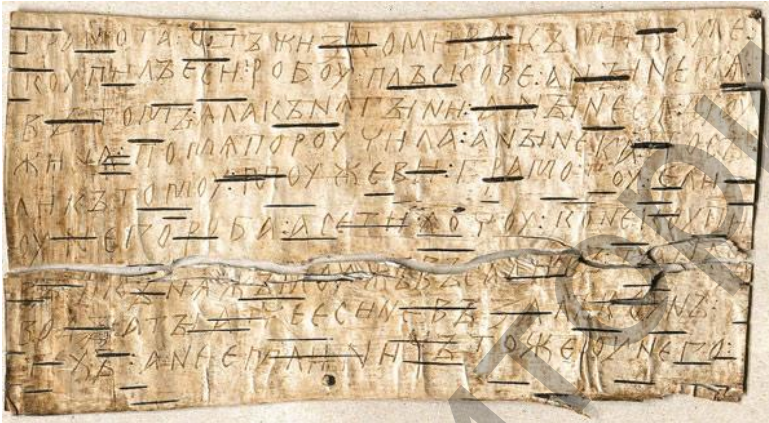 грамота : ѡтъ жизномира : къ микоуле :
коупилъ еси : робоу : плъскове : а нъıне мѧ :
въ томъ : ѧла кънѧгъıни : а нъıне сѧ дроу
жина : по мѧ пороучила : а нъıне ка : посъ
ли къ томоу : моужеви : грамотоу : е ли
оу него роба : а се ти хочоу : коне коупи
въ : и кънѧжъ моужъ въсадивъ : та на съ
водъı : а тъı атче еси не възалъ коунъ :
техъ : а не емли : ничъто же оу него :